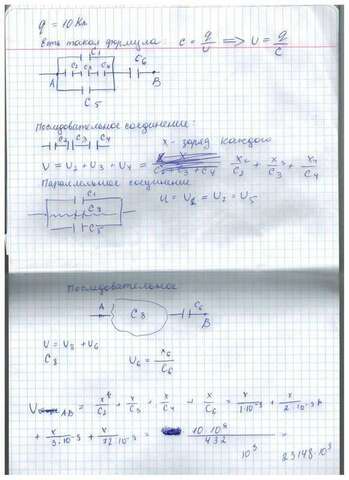 q = 10 Кл
Есть такая формула C = q/U ⟹ U = q/C
C₁
C₂ C₃ C₄ C₆
A B
C₅
Последовательное соединение:
C₂ C₃ C₄ x - заряд каждого
U = U₂ + U₃ + U₄ = x/C₂ + x/C₃ + x/C₄
Параллельное соединение
C₁
C₈
C₅
U = U₁ = U₂ = U₅
Последовательное
A C₈ C₆ B
U = U₈ + U₆
C₈ U₆ = x₆/C₆
AB = x/C₂ + x/C₃ + x/C₄ + x/C₆ = x/1·10⁻³ + x/2·10⁻³
+ x/3·10⁻³ + =
432
10³
23148·10³